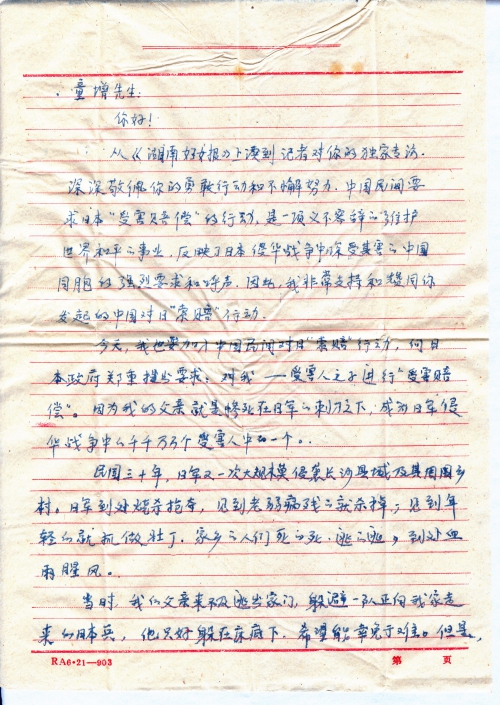 童增先生:
你好!
从《湖南妇女报》上读到记者对你的独家专访.
深深敬佩你的勇敢行动和不懈努力.中国民间要
求日本“受害赔偿”的行动,是一项义不容辞的维护
世界和平的事业,反映了日本侵华战争中深受其害的中国
同胞的强烈要求和呼声.因此,我非常支持和赞同你
发起的中国对日“索赔”行动.
今天,我也要加入中国民间对日“索赔”行动,向日
本政府郑重提出要求:对我——受害人之子进行“受害赔
偿”。因为我的父亲就是惨死在日军的刺刀之下.成为日军侵
华战争中的千千万万个受害人中的一个。
民国三十年,日军又一次大规模侵袭长沙县城及其周围乡
村。日军到处烧杀抢夺,见到老弱病残的就杀掉,见到年
轻的就抓做壮丁.家乡的人们死的死.逃的逃,到处血
雨腥风。
当时,我的父亲来不及逃出家门,躲避一队正向我家走
来的日本兵,他只好躲在床底下.希望能幸免于难。但是,
RA6·21—903
第 页